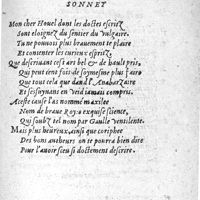 SONNET
Mon cher Houel dont les doctes escritz
Sont eloignez du sentier du vulgaire.
Tu ne pouvois plus bravement te plaire
Et contenter les curieux espritz,
Que descrivant cest art bel & de hault pris,
Qui peut cent fois de soymesme plus faire
Que tout cela que dand l'
Et ses suyvans en
Aceste cause l'as nommé maxilee
Nom de brave Roy: o exquise science,
Qui soubz tel nom par Gaulle
Mais plus heureux, ainsi que coriphee
Des bons autheurs on te pourra bien dire
Pour l'avoir sceu si doctement descrire.